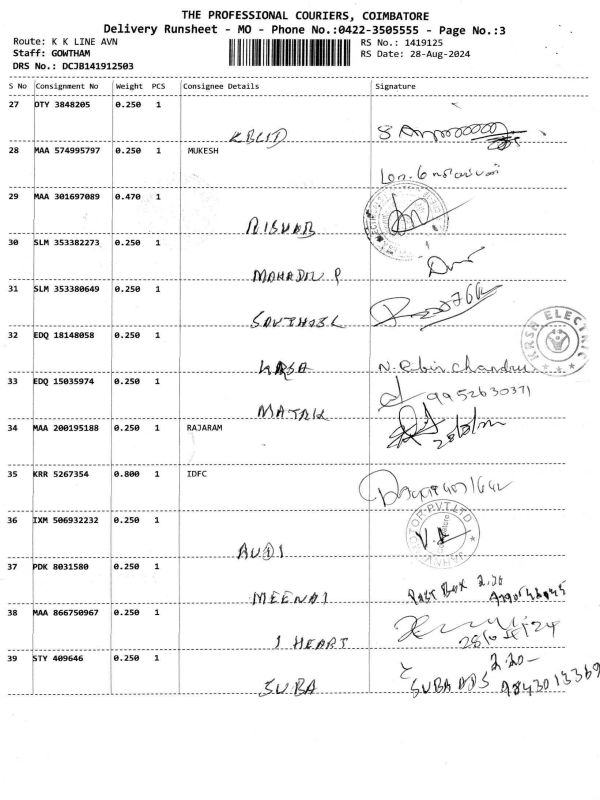 THE PROFESSIONAL COURIERS, COIMBATORE
Delivery Runsheet - MO - Phone No.:0422-3505555 - Page No.:3
Route: K K LINE AVN
RS No.: 1419125
Staff: GOWTHAM
RS Date: 28-Aug-2024
DRS No.: DCJB141912503
S No Consignment No Weight PCS Consignee Details Signature
27 OTY 3848205 0.250 1
28 MAA 574995797 0.250 1 MUKESH
29 MAA 301697089 0.470 1
RISHAB
30 SLM 353382273 0.250 1
MAHADEV P
31 SLM 353380649 0.250 1
32 EDQ 18148058 0.250 1
KRSN ELECTRIC
N. Robin Chandru
33 EDQ 15035974 0.250 1
9952630371
MATRIX
34 MAA 200195188 0.250 1 RAJARAM
35 KRR 5267354 0.800 1 IDFC
36 IXM 506932232 0.250 1
MOTOR PVT.LTD
AUDI
37 PDK 8031580 0.250 1
MEENA
Post Box 2.20
38 MAA 866750967 0.250 1
I HEART
39 STY 409646 0.250 1
2.20
SUBA
SUBA ADS 9843013369